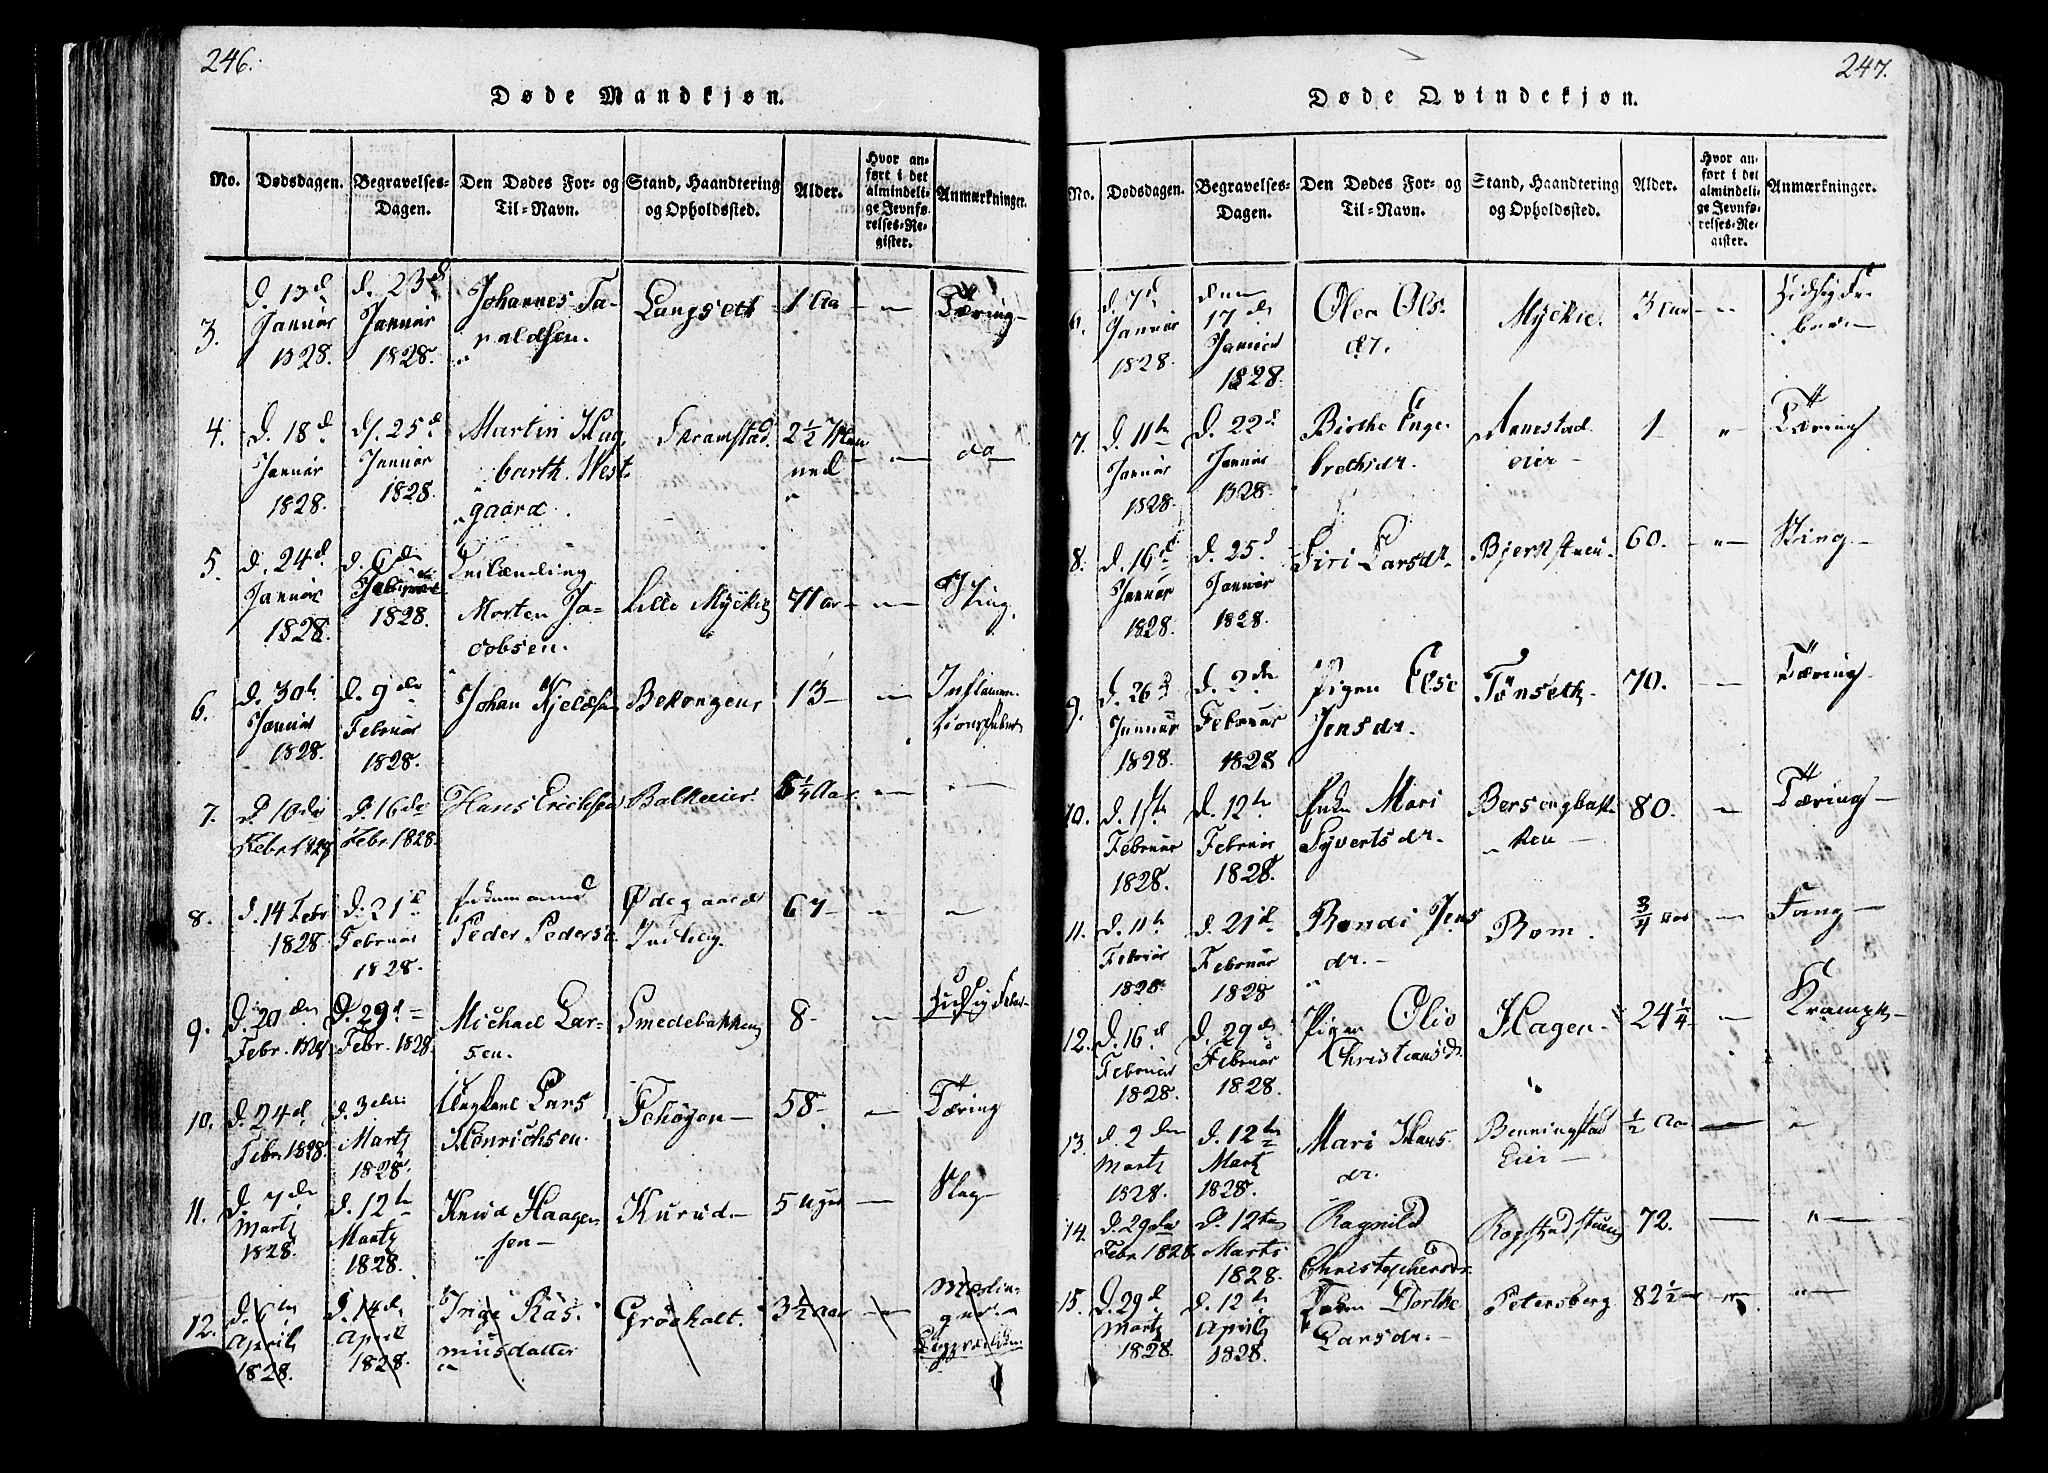 246.
Døde Mandkjøn.
No. Dødsdagen. Begravelses-Dagen. Den Dødes For- og Til-Navn. Stand, Haandtering og Opholdssted. Alder. Hvor anført i det almindelige Jevnførelses-Register. Anmærkninger.
3. d. 13d Januar 1828. d. 23d Januar 1828. Johannes Taraldsen. Langseth 1 Aa - " - Tæring -
4. d. 18d Januar 1828. d. 25d Januar 1828. Martin Hagbarth Westgaard. Skramstad. 2½ Maaned - " - do
5. d. 24d Januar 1828. d. 6d 1828. Morten Jacobsen. Lille Myckie 71 ar - " - Sting.
6. d. 30te Januar 1828. d. 9de Februar 1828. Johan Kjeldsen 13 - " - Inflammationsfeber
7. d. 10de Febr. 1828 d. 16de Febr 1828. Hans Erichsen Balkeeier. 6¼ Aar - " - " -
8. d. 14 Febr 1828. d. 21d Februar 1828. Peder Pedersen Ødegaards 67 - " - " -
9. d. 20de Febr. 1828 d. 29d Febr. 1828 Michael Larsen. Smedebakken 8 - " -
10. d. 24d Febr 1828. d. 3die Martz 1828. Lars Henrichsen. 58 - " - Tæring
11. d. 7de Martz 1828. d. 12te Martz 1828. Knud Haagensen - Kurud - 5 Uger - Slag
12. d. 6te April 1828. d. 14d April 1828. Inge Rasmusdatter Grøeholt. 3½ aar - " - Mæslinger
247.
Døde Qvindekjøn.
No. Dødsdagen. Begravelses-Dagen. Den Dødes For- og Til-Navn. Stand, Haandtering og Opholdssted. Alder. Hvor anført i det almindelige Jevnførelses-Register. Anmærkninger.
6. d. 7d Januar 1828. den 17de Januar 1828. Olea Olsdr. Myckie. 3 aar - " -
7. d. 11te Januar 1828. d. 22d Januar 1828. Birthe Engebrethsdr. Aanestad eier - 1 - " Tæring
8. d. 16d Januar 1828. d. 25d Januar 1828. Siri Larsdr. 60. - " - Sting -
9. d. 26d Januar 1828. d. 2den Februar 1828 Pigen Else Jensdr. Tønseth 70. - Tæring
10. d. 1ste Februar 1828. d. 12te Februar 1828. Enke Mari Syvertsdr. Bersengbakken - 80. - Tæring -
11. d. 11te Februar 1828. d. 21d Februar 1828 Rondi Jensdr. - Rom. ¾ aar -
12. d. 16d Februar 1828. d. 29de Februar 1828. Pigen Olio Christiansdr. Hagen - 24¼ - Krampe -
13. d. 2den Martz 1828. d. 12te Martz 1828. Mari Hansdr. Benningstad Eier - ½ Aa - "
14. d. 29de Febr 1828. d. 12te Marts 1828 Ragnild Christophersdr. Rogstadstuen 72. - " -
15. d. 29d Martz 1828. d. 12te April 1828. Dorthe Larsdr. - Petersberg 82½ - " - " -